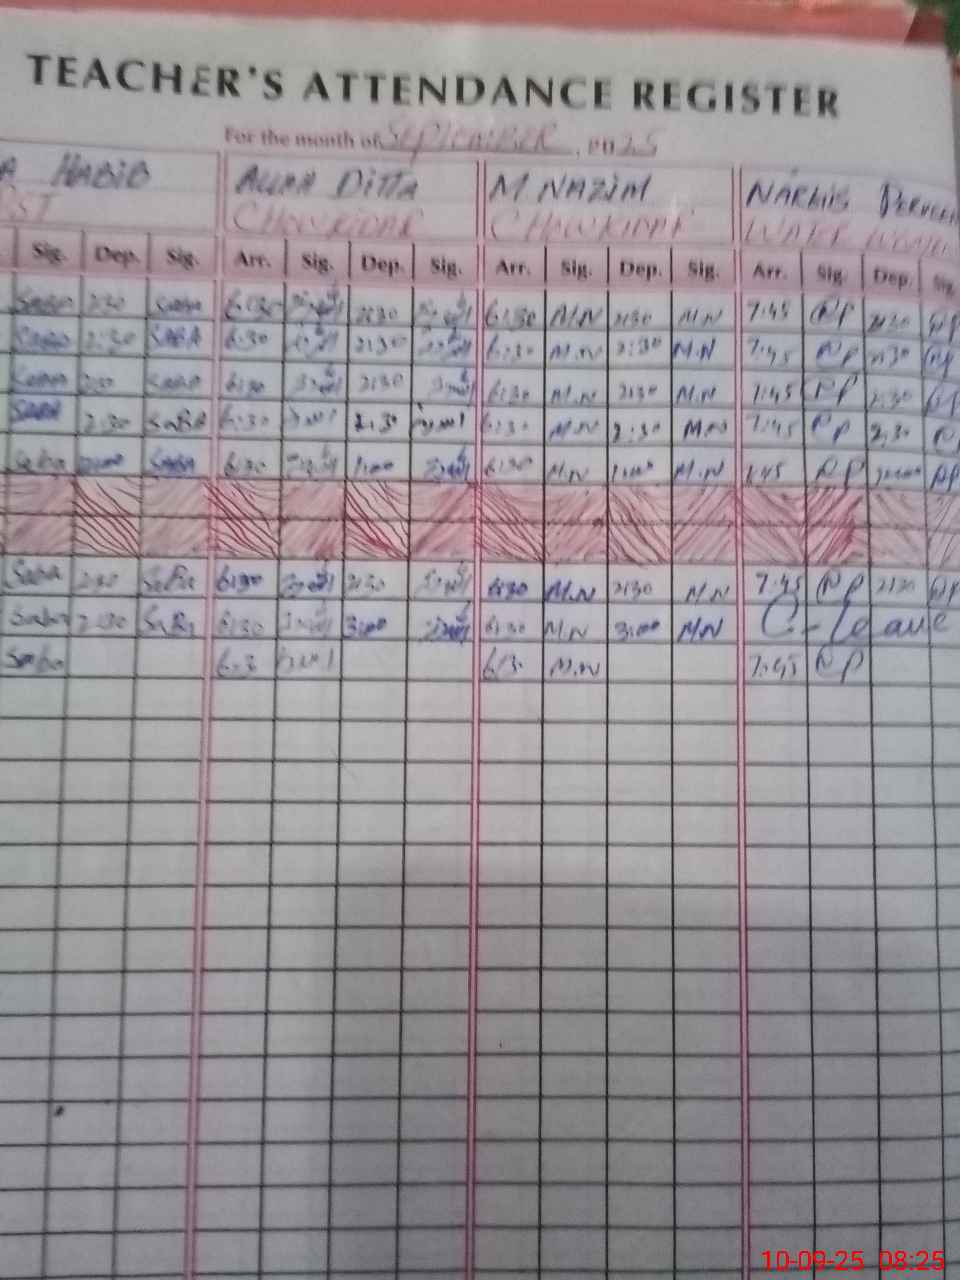 TEACHER'S ATTENDANCE REGISTER
For the month of September, 2025
A HABIB ALLAH DITTA M NAZIM NARGIS
ST CHOWKIDAR CHOWKIDAR WATER
Sig. Dep. Sig. Arr. Sig. Dep. Sig. Arr. Sig. Dep. Sig. Arr. Sig. Dep. Sig.
Saba 2:30 Saba 6:30 2:30 6:30 M.N 2:30 M.N 7:45 NP 2:30 NP
Saba 2:30 SABA 6:30 2:30 6:30 M.N 2:30 M.N 7:45 NP 2:30 NP
Saba 2:30 Saba 6:30 2:30 6:30 M.N 2:30 M.N 7:45 NP 2:30 NP
SABA 2:30 SaBA 6:30 2:30 6:30 M.N 2:30 M.N 7:45 NP 2:30
Saba SABA 6:30 6:30 M.N M.N NP NP
Saba 2:30 SaBa 6:30 2:30 6:30 M.N 2:30 M.N 7:45 NP 2:30 NP
Saba 2:30 SaBa 6:30 3:00 6:30 M.N 3:00 M.N C-leave
Saba 6:3 6:3 M.N 7:45 NP
10-09-25 08:25